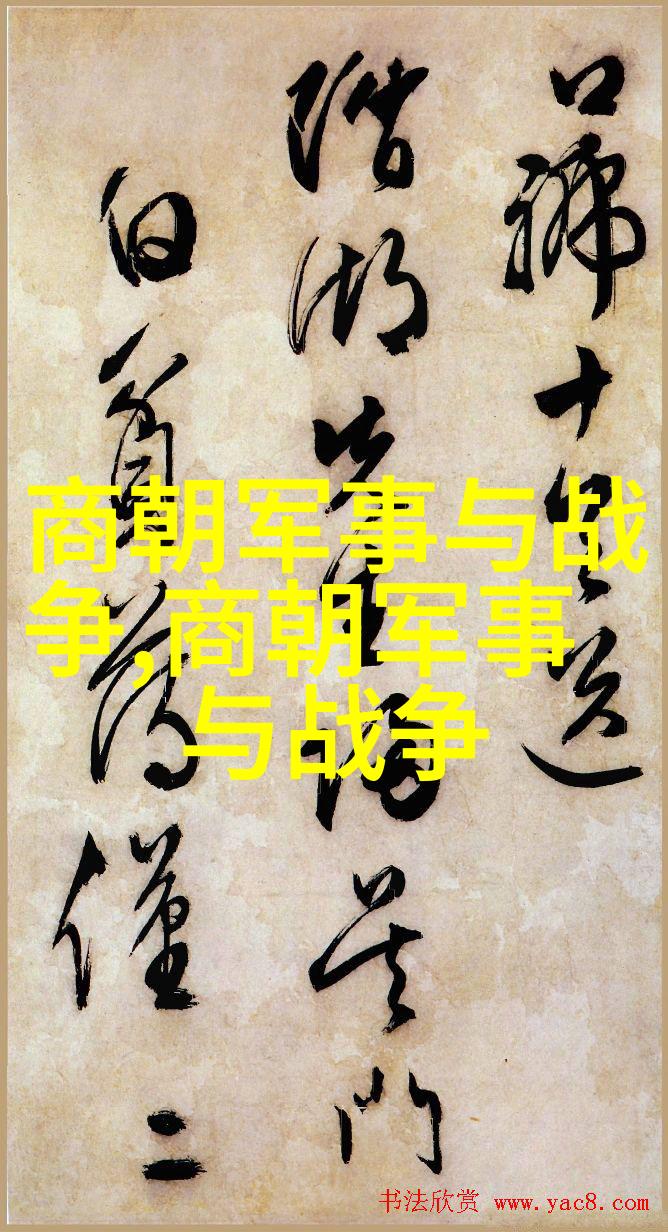 口號十
階湖先生吴門
白僅二
商朝军事与战
争,商朝军事
与战争
书法欣赏 www.yac8.com